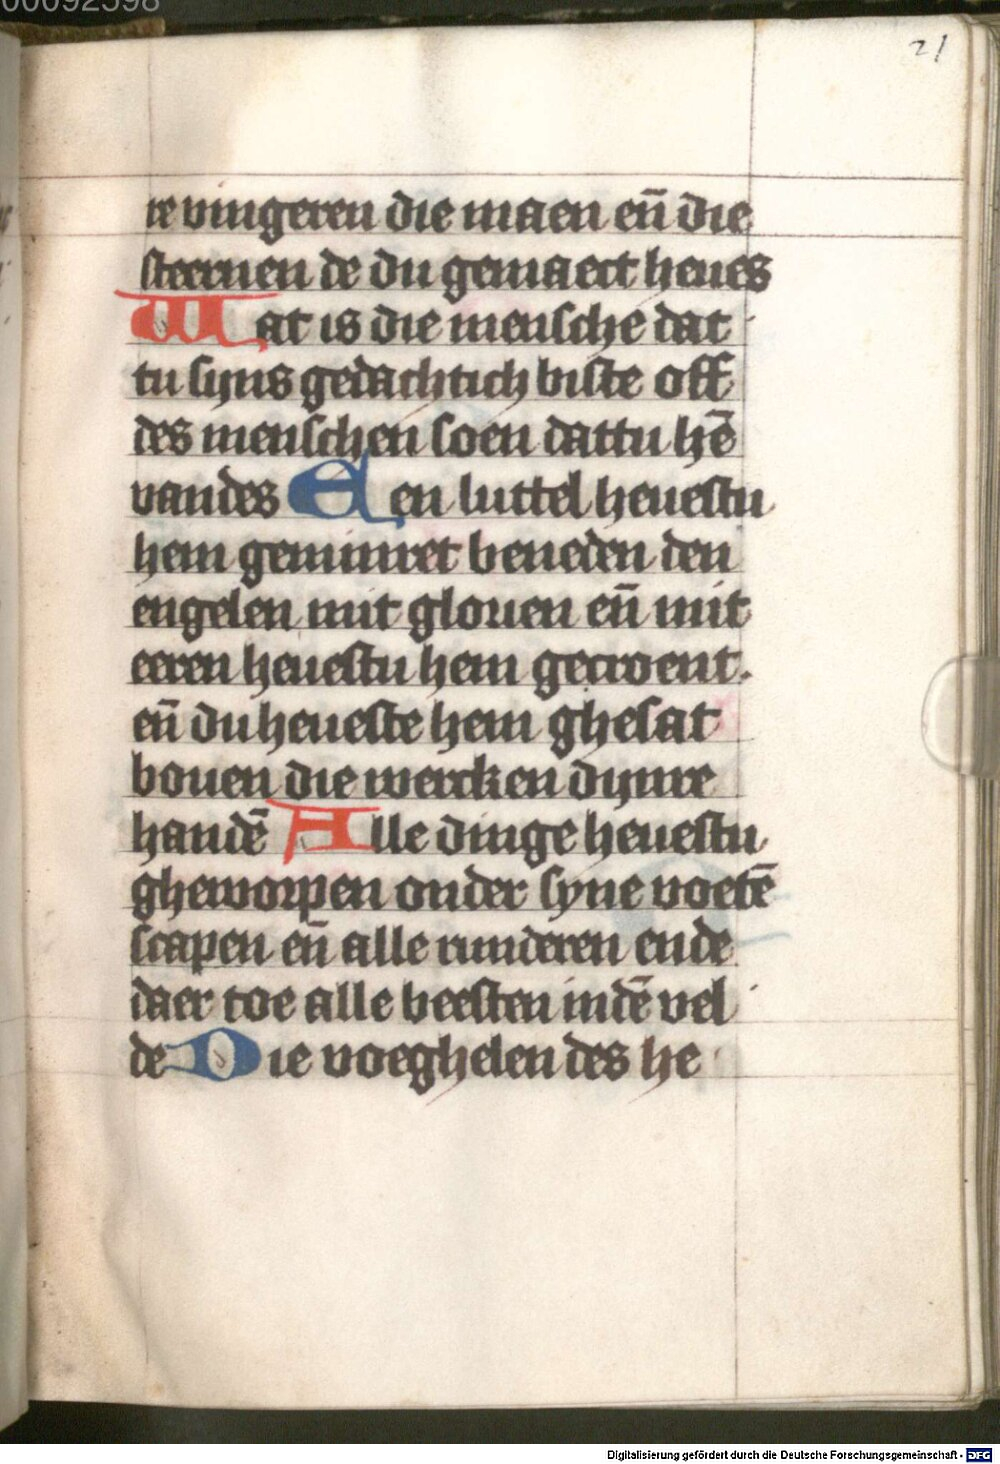 00092598
21
re vingeren die maen en̄ die
steernen de du gemaect heues
Wat is die mensche dat
tu syns gedachtich biste off
des menschen soen dattu hē
vandes Een luttel heuestu
hem geminret beneden den
engelen mit glorien en̄ mit
eeren heuestu hem gecroent.
en̄ du heueste hem ghesat
bouen die wercken dynre
handē Alle dinge heuestu
gheworpen onder syne voetē
scapen en̄ alle runderen ende
daer toe alle beesten indē vel
de Die voeghelen des he
Digitalisierung gefördert durch die Deutsche Forschungsgemeinschaft - DFG